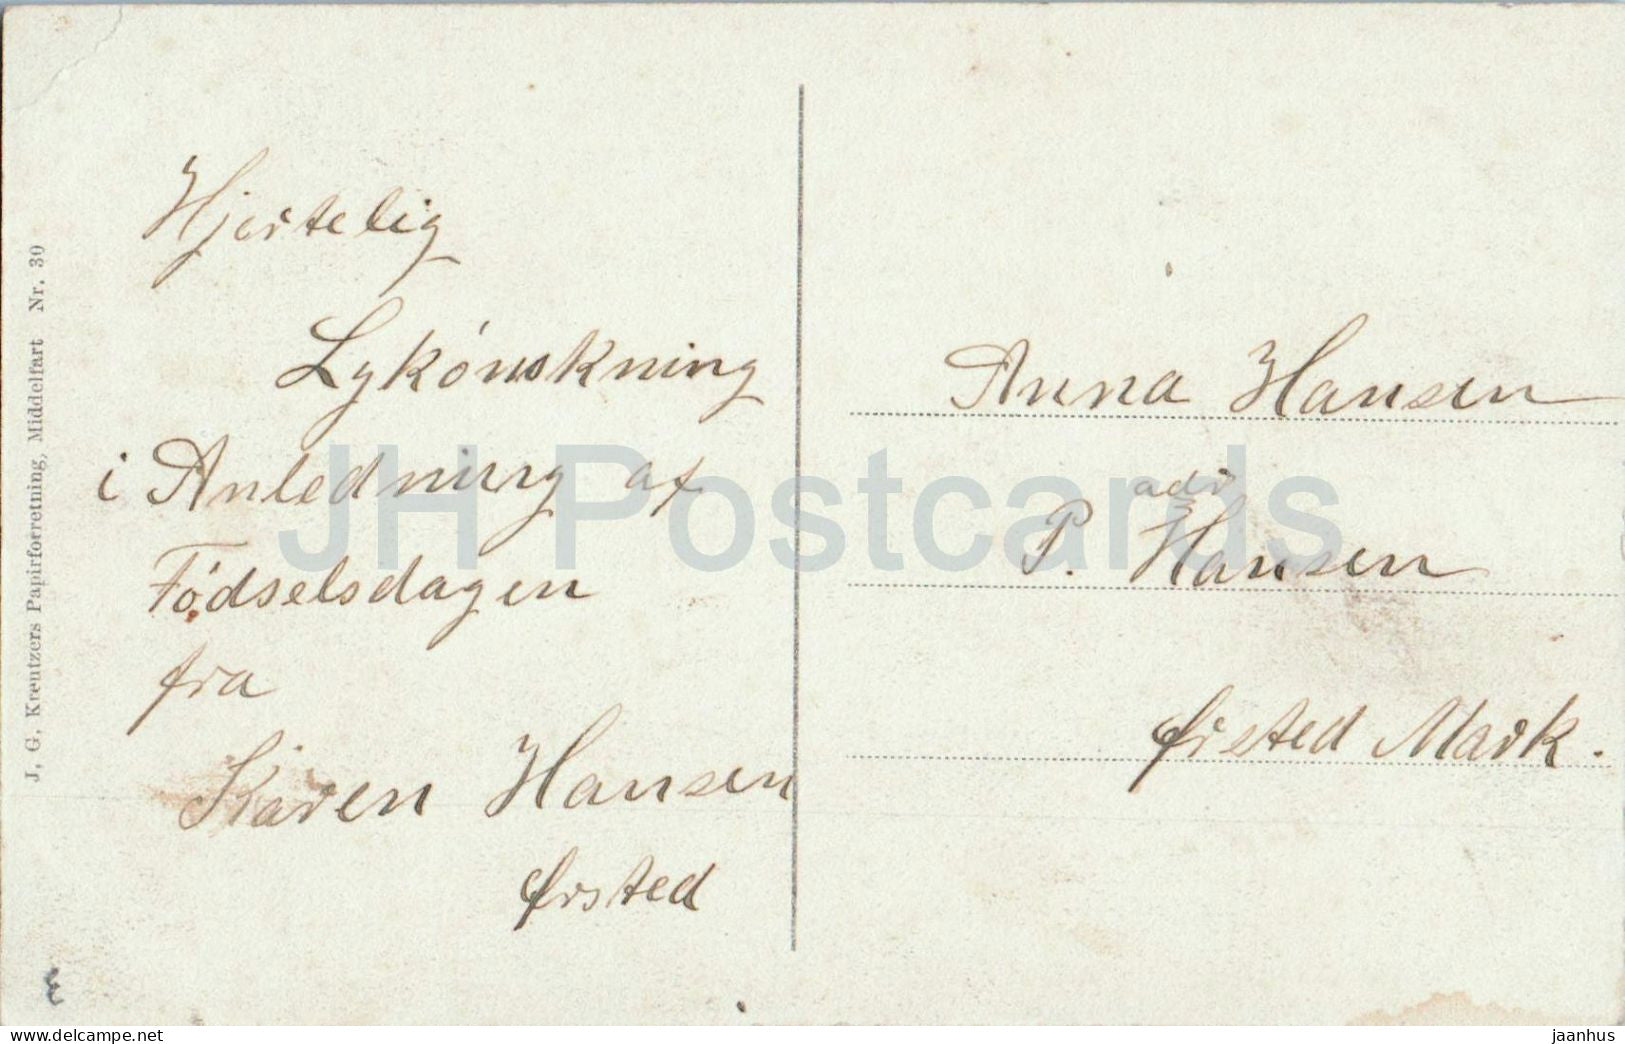 J. G. Krentzers Papirforretning, Middelfart Nr. 30
Hjertelig
Lykónskning
i Anledning af
Fódselsdagen
fra
Karen Hansen
Ørsted
Anna Hansen
adr
P. Hansen
Ørsted Mark.
JH Postcards
www.delcampe.net
jaanhus